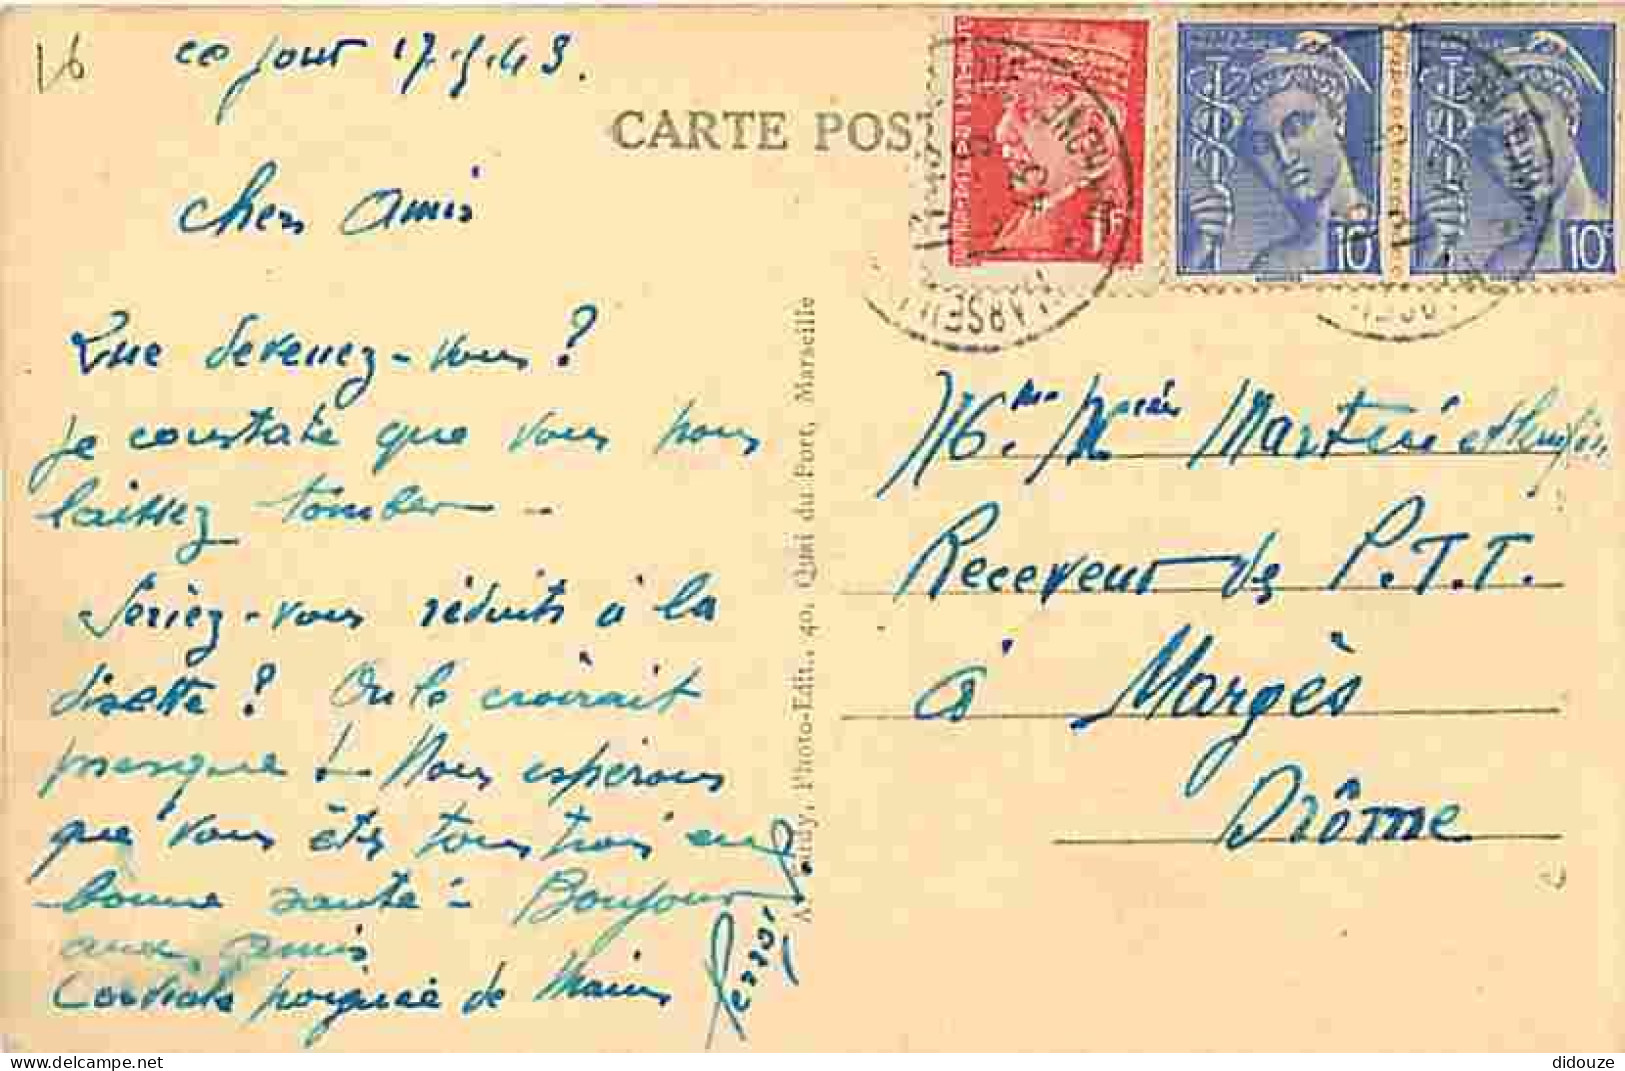 16
ce jour 17.5.43.
CARTE POS
Chers amis
Que devenez-vous ?
je constate que vous nous
laissez tomber -
Seriez-vous réduits à la
disette ? On le croirait
presque ! Nous espérons
que vous êtes tous trois en
bonne santé - Bonjour
aux amis
Cordiale poignée de Mains
Photo-Edit., 40, Quai du Port, Marseille
1F
10c
10c
MARSEILLE
43
Receveur des P.T.T.
à Margès
Drôme
didouze